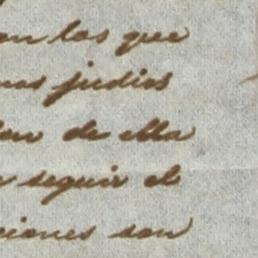 on los que
nos judios
lan de ella
seguir el
ciones son